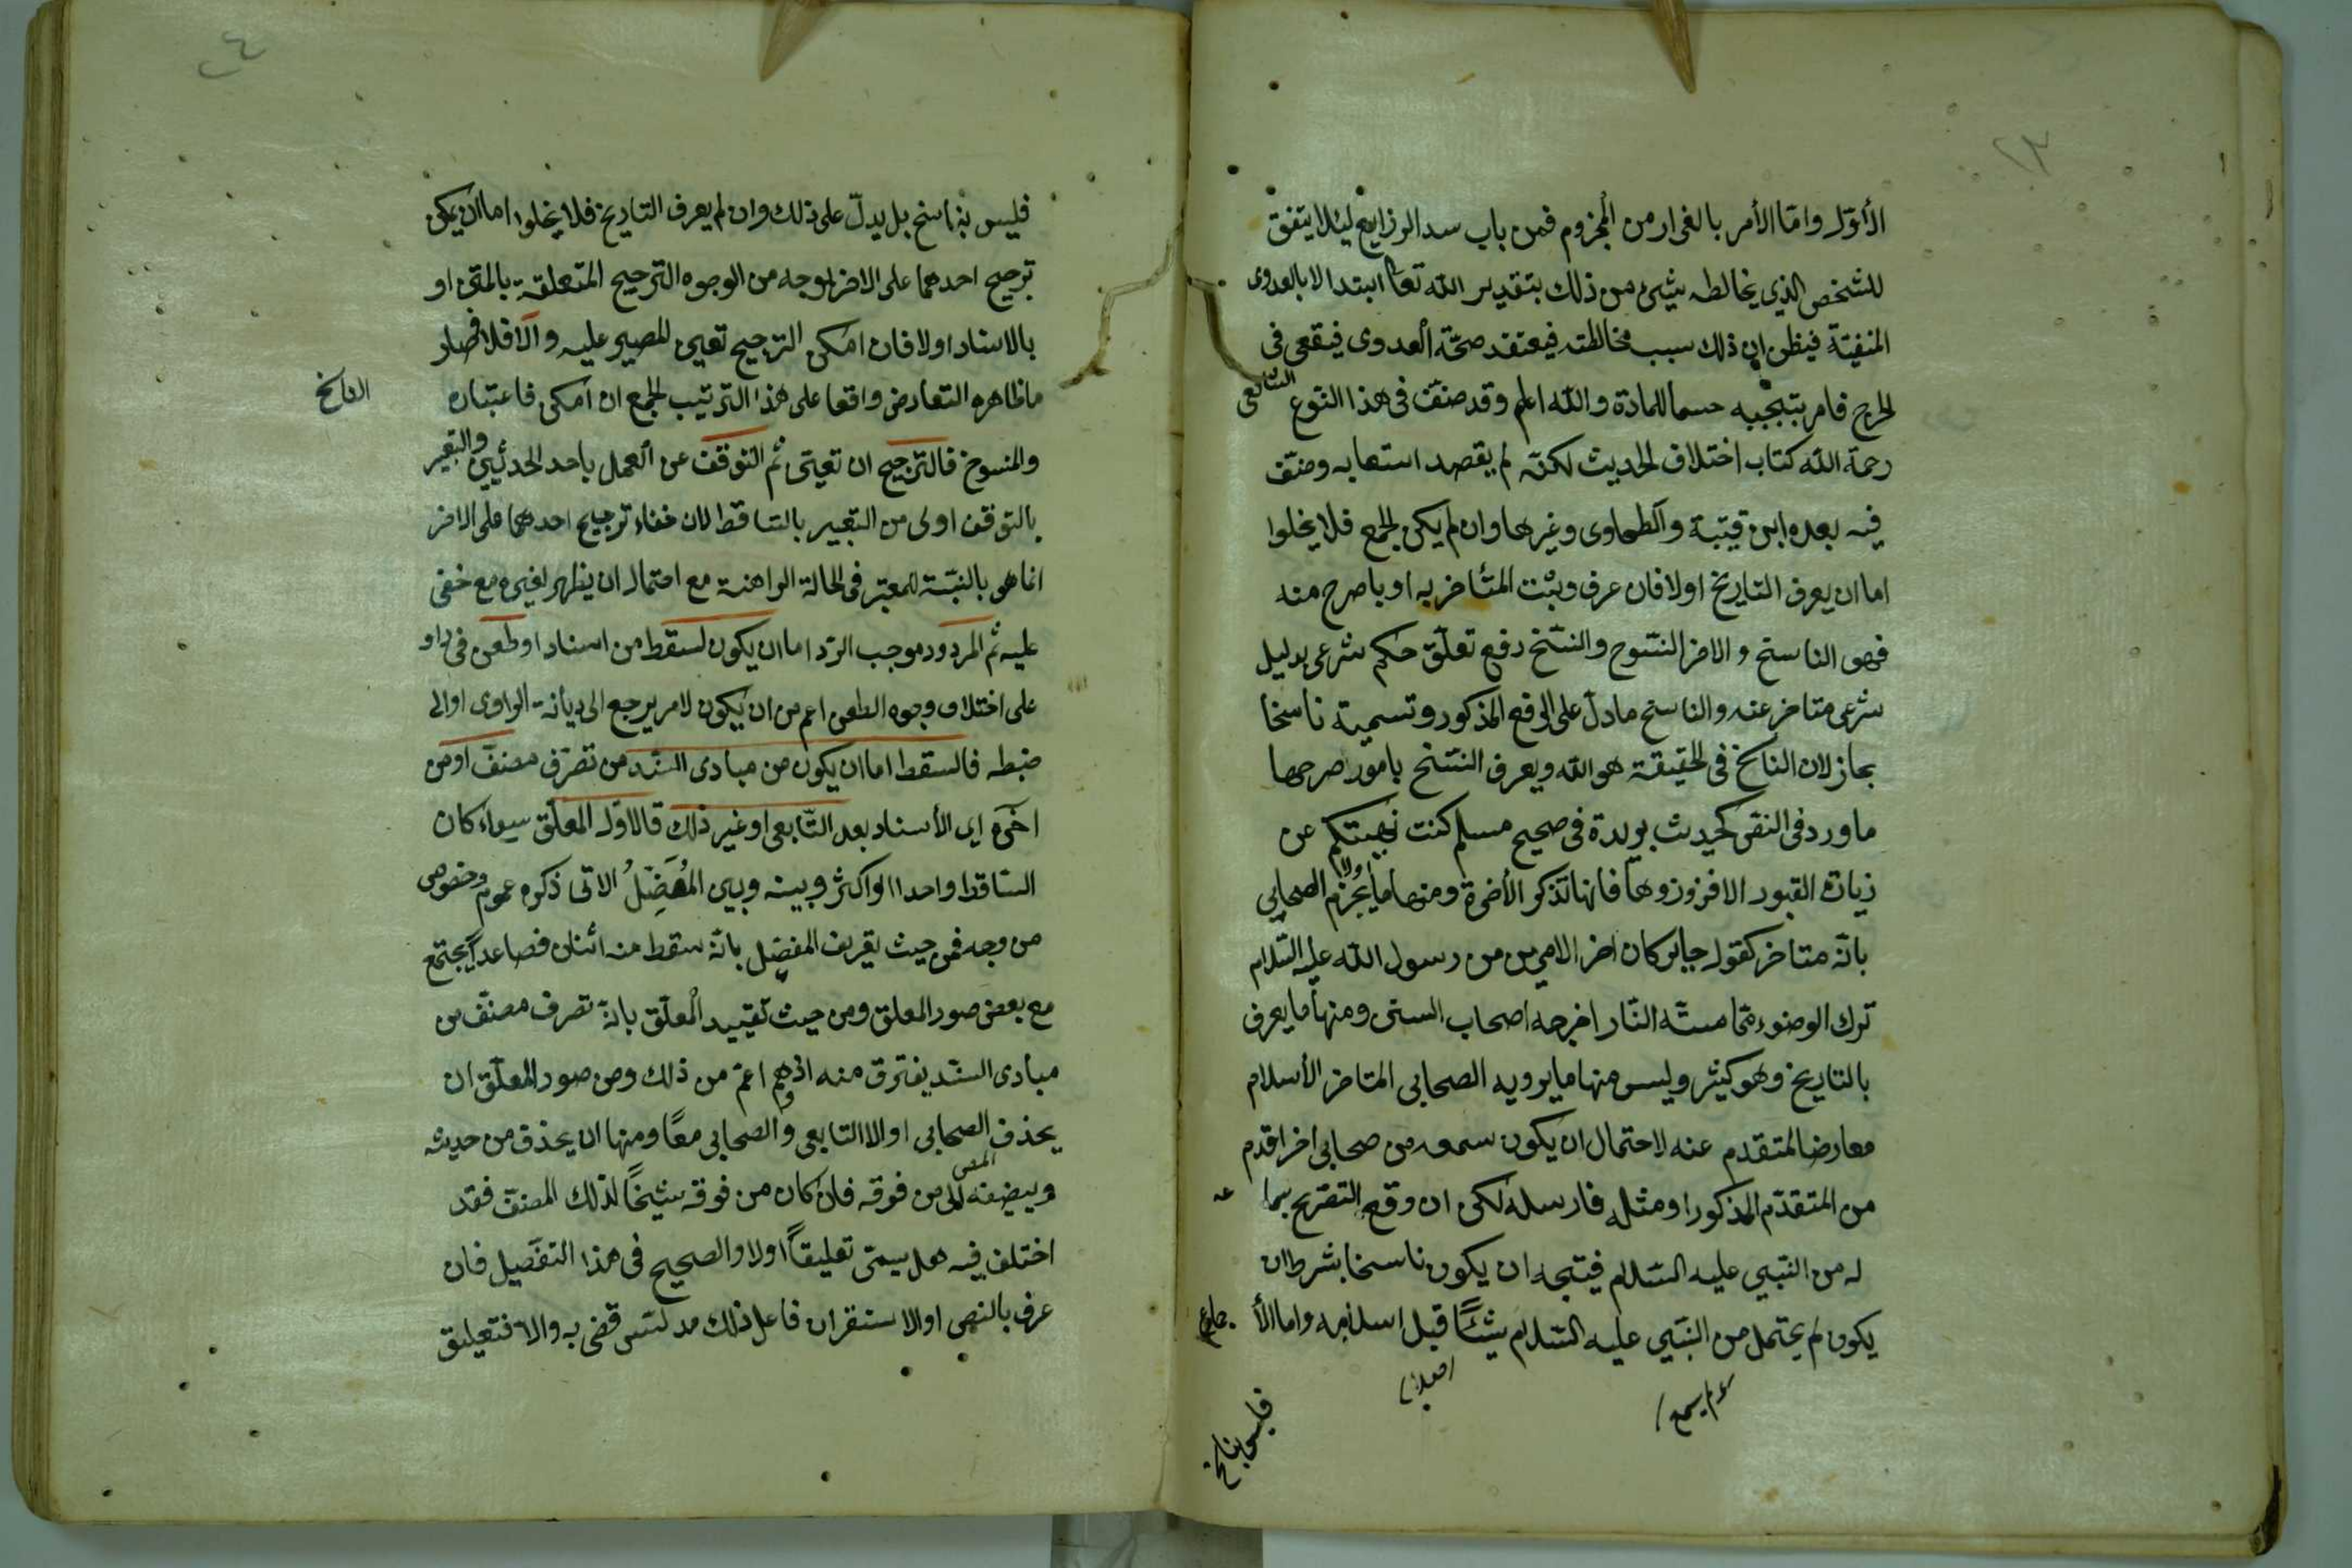 ٢٣
الأوّل وامّا الأمر بالفرار من المجزوم فمن باب سد الزرايع ليئلا يتفق
للشخص الذي يخالطه شيئ من ذلك بتقدير الله تعا ابتدا لا بالعدوى
المنفيّة فيظن ان ذلك سبب مخالطته فيعتقد صحّة العدوى فيقعى فى
الحرج فامر بتجنبه حسما للمادة والله اعلم وقد صنّف فى هذا النوع الشافعى
رحمة الله كتاب اختلاف الحديث لكنّه لم يقصد استعابه وصنّف
فيه بعده ابن قتيبة والطحاوى وغيرهما وان لم يكن الجمع فلا يخلوا
اما ان يعرف التاريخ اولا فان عرف وثبت المتأخر به او باصرح منه
فهو الناسخ والاخر المنسوح والنسّخ رفع تعلّق حكم شرعى بدليل
شرعى متاخر عنه والناسخ مادلّ على الرفع المذكور وتسمية ناسخا
مجاز لان الناسخ فى الحقيقة هو الله ويعرف النسّخ بامور اصرحها
ما ورد فى النقى كحديث بريدة فى صحيح مسلم كنت نهيتكم عن
زيات القبور الا فزوزوها فانها تذكر الأخرة ومنها ما يجزم الصحابي
بانّه متاخر كقول جابر كان اخر الامرين من رسول الله عليه السّلام
ترك الوضوء ممّا مسّته النّار اخرجه اصحاب السنى ومنها ما يعرف
بالتاريخ وهو كثير وليس منها ما يرويه الصحابى المتاخر الأسلام
معارضا لمتقدم عنه لاحتمال ان يكون سمعه من صحابى اخر اقدم
من المتقدّم المذكور او مثله فارسله لكى ان وقع التصّريح بسما عه
له من النّبي عليه السّلام فيتجه ان يكون ناسخا بشرط ان
يكون لم يحتمل من النّبي عليه السّلام شيئًا قبل اسلامه واما الأ جماع
فليس بناسخ
٢٤
فليس بناسخ بل يدلّ على ذلك وان لم يعرف التاريخ فلا يخلوا اما ان يمكن
ترجيح احدهما على الاخر بوجه من الوجوه الترجيح المتعلقة بالمتن او
بالاسناد اولا فان امكن الترجيح تعين المصير عليه والّا فلا فصار
ماظاهره التعارض واقعا على هذا الترتيب الجمع ان امكن فاعتبار الناسخ
والمنسوخ فالترجيح ان تعيّن ثم التوقّف عن العمل باحد الحديثين والتعبير
بالتوقف اولى من التعبير بالتساقط لان خفاء ترجيح احدهما على الاخر
انما هو بالنسّبة للمعتبر فى الحالة الراهنة مع احتمال ان يظهر لغيره مع خفى
عليه ثم المردود وموجب الرّد اما ان يكون لسقط من اسناد او طعن فى راو
على اختلاف وجوه الطعن اعم من ان يكون لامر يرجع الى ديانة الراوى او الى
ضبطه فالسقط اما ان يكون من مبادى السّند من تصرّف مصنّف او من
اخره اى الأسناد بعد التّابعى او غير ذلك فالاوّل المعلّق سواء كان
السّاقط واحدا او اكثر وبينه وبين المُعضَلُ الاتى ذكره عموم وخصوص
من وجه فمن حيث تعريف المعضل بانّه سقط منه اثنان فصاعداً يجتمع
مع بعض صور المعلق ومن حيث تقييد المعلّق بانّه تصرف مصنّف من
مبادى السّند يفترق منه اذ هو اعمّ من ذلك ومن صور المعلّق ان
يحذف الصحابى اوالا التابعى والصحابى معًا ومنها ان يحذف من حديثه
ويضيفه الى من فوقه فان كان من فوقه شيخًا لذلك المصنّف فقد
اختلف فيه هل يسمّى تعليقاً اولا والصحيح فى هذا التفصيل فان
عرف بالنص او الاستقران فاعل ذلك مدلّس قضى به والا فتعليق